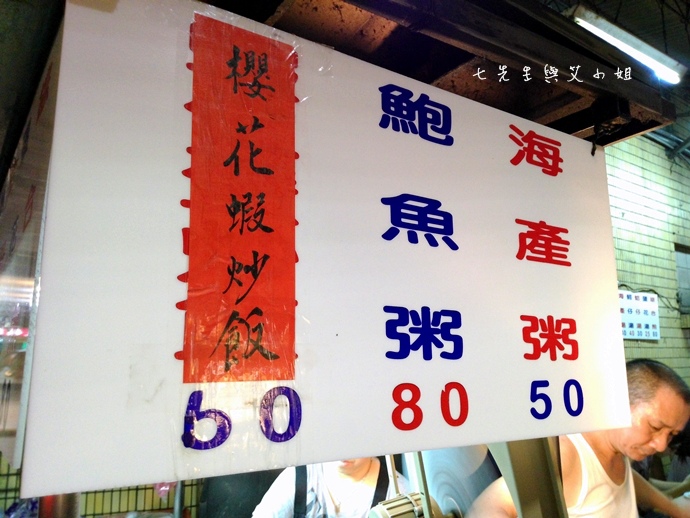 七先生與艾小姐
海產粥
50
鮑魚粥
80
櫻花蝦炒飯
60